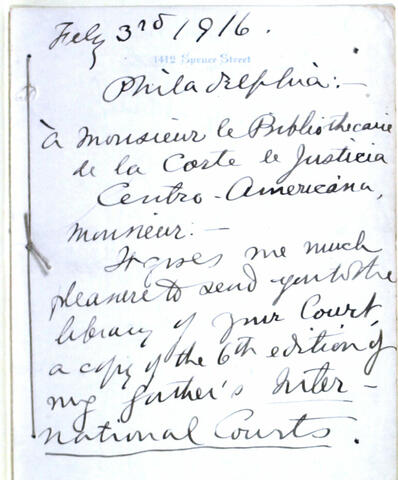 Feby 3rd 1916.
1412 Spruce Street
Philadelphia:-
à Monsieur le Bibliothecaire
de la Corte de Justicia
Centro-Americana,
Monsieur:-
It gives me much
pleasure to send you to the
library of your Court,
a copy of the 6th edition of
my father's Inter-
national Courts.